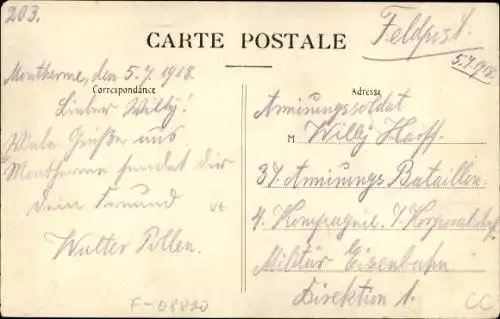 203.
CARTE POSTALE
Feldpost.
5.7.1918.
Montherme, den 5.7.1918.
Correspondance
Lieber Willy!
Viele Grüße aus
Montherme sendet dir
dein Freund
Walter Pollen.
Adresse
Armirungssoldat
M Willy Harff.
37 Armirungs Bataillon.
4. Kompagnie. 7. Korporalschaft
Militär Eisenbahn
Direktion 1.
F-08800
CC